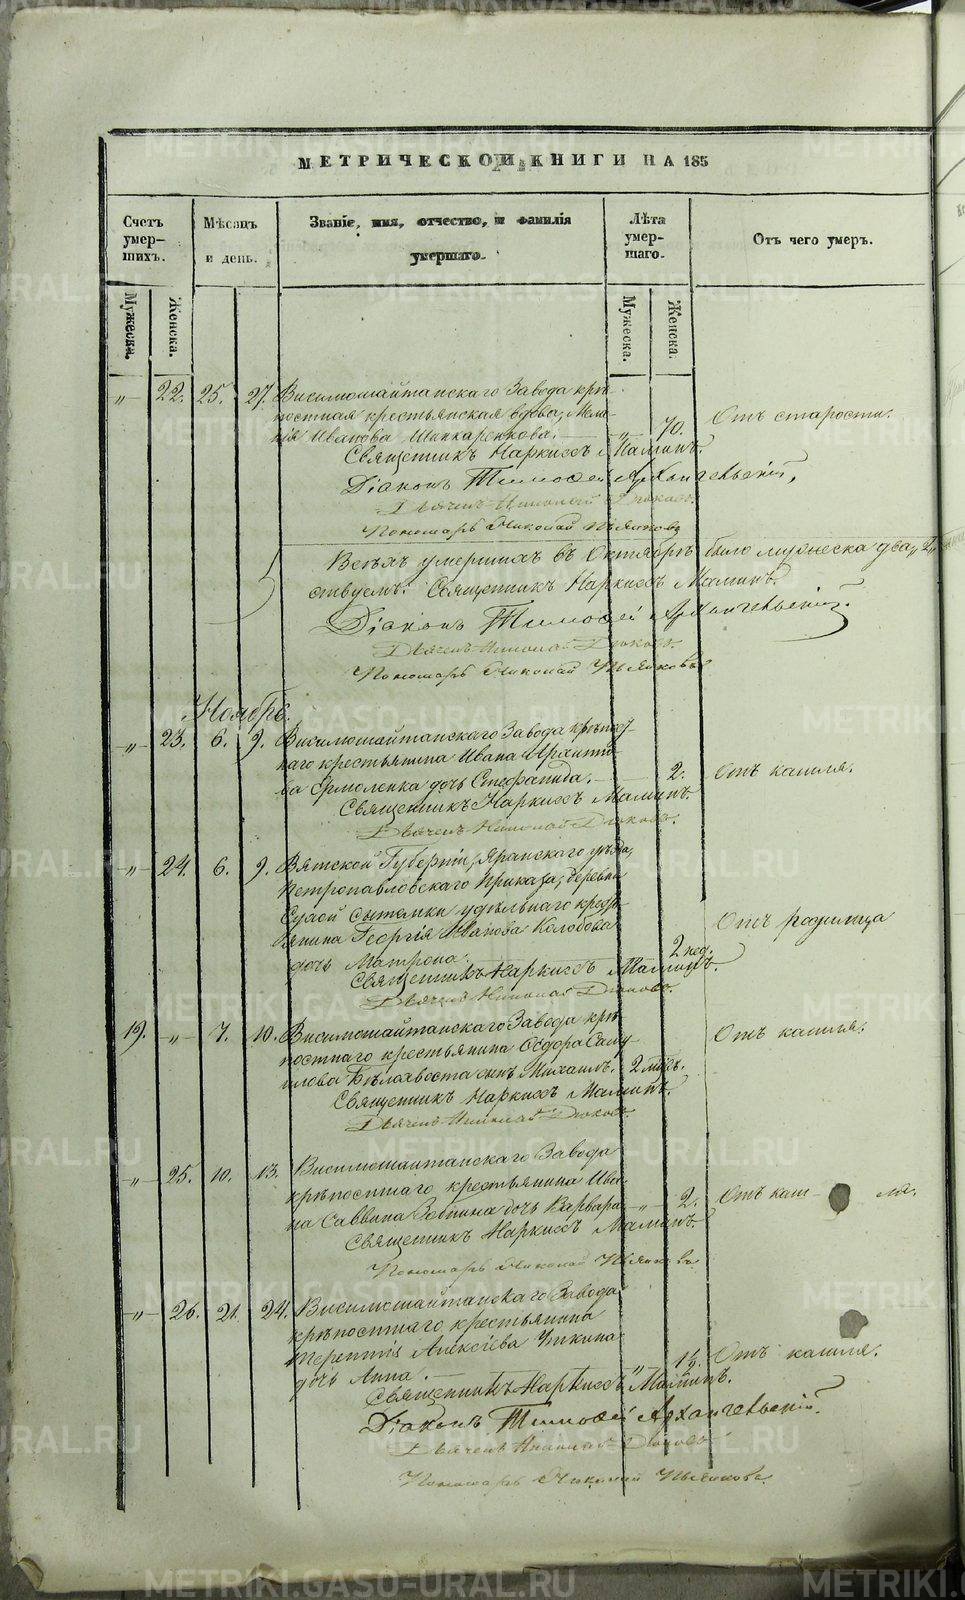 МЕТРИЧЕСКОЙ КНИГИ НА 185
Счетъ умер-шихъ.
Мѣсяцъ и день.
Званіе, имя, отчество, и фамилія умершаго.
Лѣта умер-шаго.
Отъ чего умеръ.
Мужеска. Женска. Мужеска. Женска.
„ 22. 25. 27. Висимошайтанскаго Завода крѣ-
постная крестьянская вдова, Мела-
нія Иванова Шинкаренкова. „ 70. Отъ старости.
Священникъ Наркисъ Маминъ.
Діаконъ Тимофей Архангельскій,
Дьячекъ Николай Дюковъ.
Пономарь Николай Пьянковъ
Всѣхъ умершихъ въ Октябрѣ было мужеска два, 2,
ствуемъ: Священникъ Наркисъ Маминъ.
Діаконъ Тимофей Архангельскій.
Дьячекъ Николай Дюковъ.
Пономарь Николай Пьянковъ
Ноябрь.
„ 23. 6. 9. Висимошайтанскаго Завода крѣпост
наго крестьянина Ивана
ва Ермоленка дочь Стефанида. 2. Отъ кашля.
Священникъ Наркисъ Маминъ.
Дьячекъ Николай Дюковъ.
„ 24. 6. 9. Вятской Губерніи, Яранскаго уѣзда,
Петропавловскаго Приказа, деревни
Сухой удѣльнаго кресть
янина Георгія Иванова Колобова
дочь Матрона. 2 нед. Отъ родимца
Священникъ Наркисъ Маминъ.
Дьячекъ Николай Дюковъ.
19. „ 7. 10. Висимошайтанскаго Завода крѣ
постнаго крестьянина Ѳедора Саму-
илова Бѣлохвоста сынъ Михаилъ. 2 мѣсъ. Отъ кашля.
Священникъ Наркисъ Маминъ.
Дьячекъ Николай Дюковъ.
„ 25. 10. 13. Висимошайтанскаго Завода
крѣпостнаго крестьянина Ива
на Саввина Зотина дочь Варвара „ 2. Отъ каш - ля.
Священникъ Наркисъ Маминъ.
Пономарь Николай Пьянковъ
„ 26. 21. 24. Висимошайтанскаго Завода
крѣпостнаго крестьянина
Терентія Алексіева Уткина
дочь Анна. „ 1½. Отъ кашля.
Священникъ Наркисъ Маминъ.
Діаконъ Тимофей Архангельскій.
Дьячекъ Николай Дюковъ
Пономарь Николай Пьянковъ.
METRIKI.GASO-URAL.RU